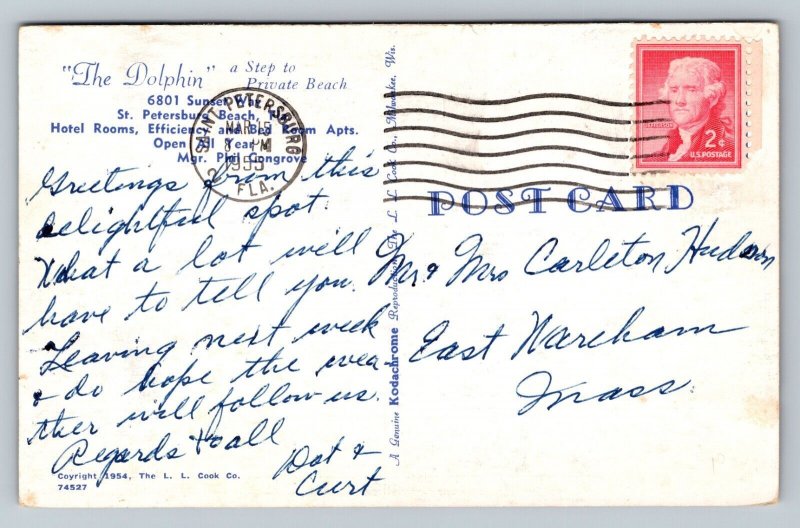 "The Dolphin" a Step to
Private Beach
6801 Sunset Way
St. Petersburg Beach,
Hotel Rooms, Efficiency and Bed Room Apts.
Open All Year
Mgr. Phil Congrove
SAINT PETERSBURG
MAR 15
8 PM
1955
FLA.
2¢
U.S. POSTAGE
POST CARD
Greetings from this
delightful spot.
What a lot will
have to tell you.
Leaving next week
& do hope the wea
ther will follow us.
Regards to all
Dot &
Curt
Mr & Mrs Carleton Hudson
East Wareham
Mass.
A Genuine Kodachrome Reproduction, The L. L. Cook Co., Milwaukee, Wis.
Coyright 1954, The L. L. Cook Co.
74527